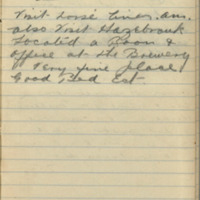 Visit Horse Lines. am.
also Visit Hazebrouk
Located a Room &
Office at the Brewery
Very fine place.
Good Bed Est